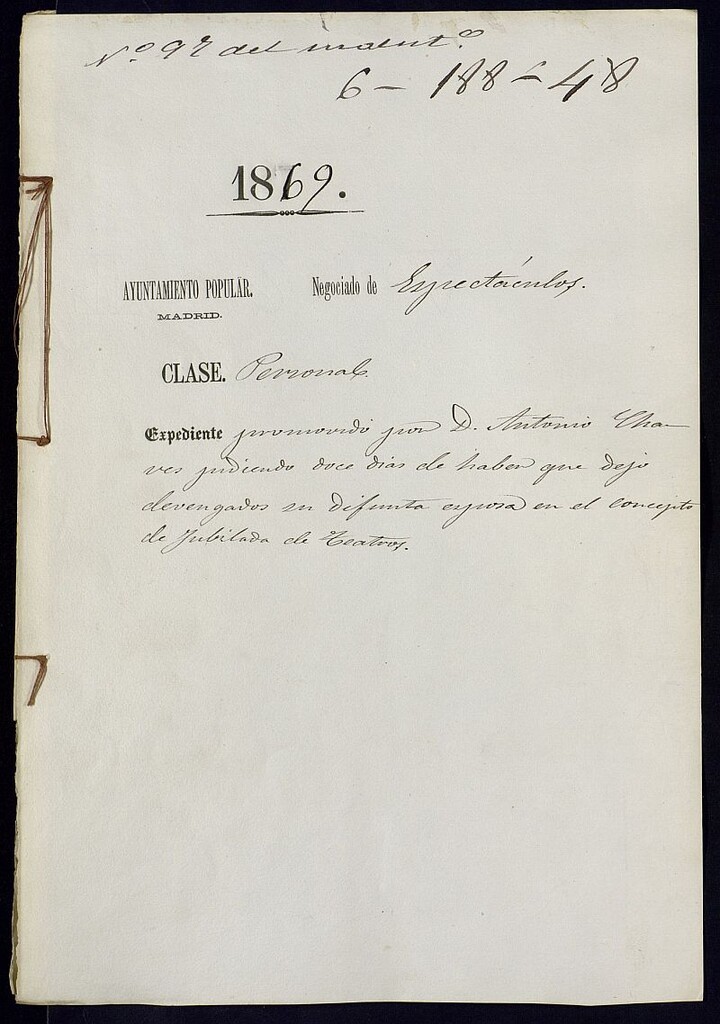 Nº 92 del invent.º
6 - 188 - 48
1869.
AYUNTAMIENTO POPULAR. Negociado de Espectáculos.
MADRID.
CLASE. Personal.
Expediente promovido por D. Antonio Cha-
ves pidiendo doce dias de haber que dejó
devengados su difunta esposa en el concepto
de Jubilada de Teatros.